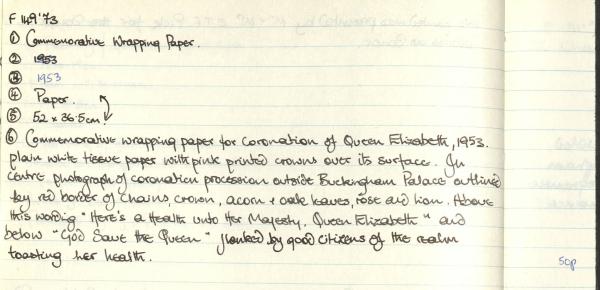 F 149'73
① Commemorative Wrapping Paper.
② 1953
③ 1953
④ Paper.
⑤ 52 x 36.5cm.
⑥ Commemorative wrapping paper for coronation of Queen Elizabeth, 1953.
plain white tissue paper with pink printed crowns over its surface. In
centre photograph of coronation procession outside Buckingham Palace outlined
by red border of chains, crown, acorn + oak leaves, rose and lion. Above
this wording "Here's a Health unto Her Majesty, Queen Elizabeth" and
below "God Save the Queen" flanked by good citizens of the realm
toasting her health.
50p